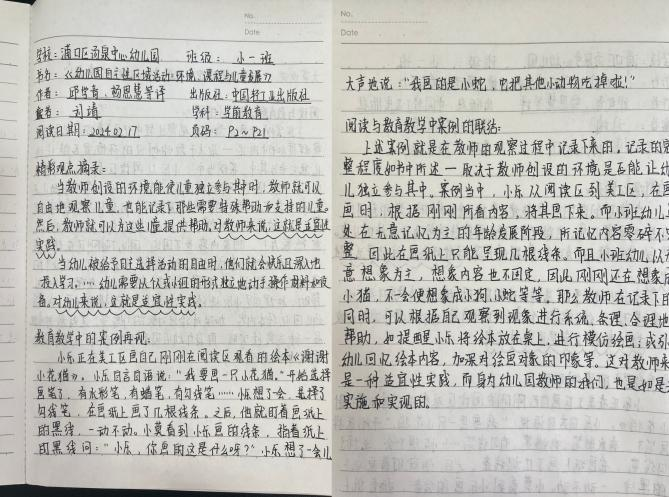 No.
Date
学校：浦口区汤泉中心幼儿园 班级：小一班
书名：《幼儿园自主性区域活动：环境、课程与儿童发展》
作者：邱学青、杨恩慧等译 出版社：中国轻工业出版社
姓名：刘靖 学科：学前教育
阅读日期：2024.02.17 页码：P2～P21
精彩观点摘录：
当教师创设的环境能使儿童独立参与其中时，教师就可以
自由地观察儿童，也能记录下那些需要特殊帮助和支持的儿童。
然后，教师就可以为这些儿童提供帮助。对教师来说，这就是适宜性
实践。
当幼儿被给予自主选择活动的自由时，他们就会快乐且深入地
投入学习。……幼儿需要从个人或小组的形式独立地动手操作材料和设
备。对幼儿来说，这就是适宜性实践。
教育教学中的案例再现：
小乐正在美工区画自己刚刚在阅读区观看的绘本《谢谢
小花猫》。小乐自言自语说：“我要画一只小花猫。”开始选择
画笔了，有水彩笔，有蜡笔，有勾线笔……小乐想了一会，选择了
勾线笔，在画纸上画了几根线条。之后，他就盯着画纸上
的黑线，一动不动。小莫看到小乐画的线条，指着纸上
的黑线问：“小乐，你画的这是什么呀？”小乐想了一会儿
No.
Date
大声地说：“我画的是小蛇，它把其他小动物吃掉啦！”
阅读与教育教学中案例的联结：
上述案例就是在教师的观察过程中记录下来的，记录的完
整程度如书中所述一取决于教师创设的环境是否能让幼
儿独立参与其中。案例当中，小乐从阅读区到美工区，在画
画时，根据刚刚所看内容，将其画下来。而小班幼儿
处在无意记忆为主的年龄发展阶段，所记忆内容零碎不完
整，因此在画纸上只能呈现几根线条。而且小班幼儿以无
意想象为主，想象内容也不固定，因此刚刚还在想象成
小猫，不一会便想象成小狗、小蛇等等。那么教师在记录下的
同时，可以根据自己观察到现象进行系统、条理、合理地
帮助，如提醒小乐将绘本放在桌上，进行模仿绘画；或引
幼儿回忆绘本内容，加深对绘画对象的印象等。这对教师来
是一种适宜性实践，而身为幼儿园教师的我们，也是如是
实施和实现的。